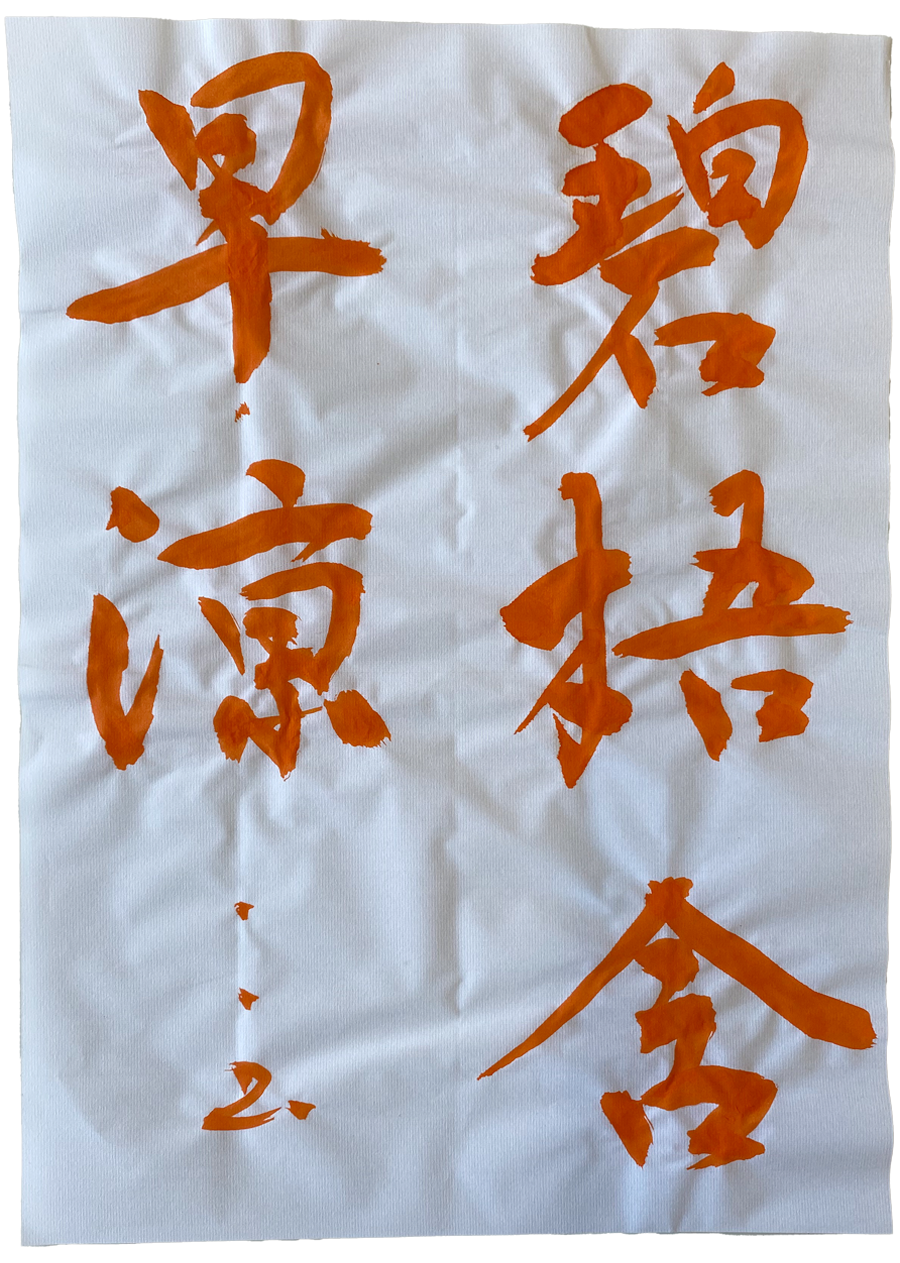 碧梧含
早涼